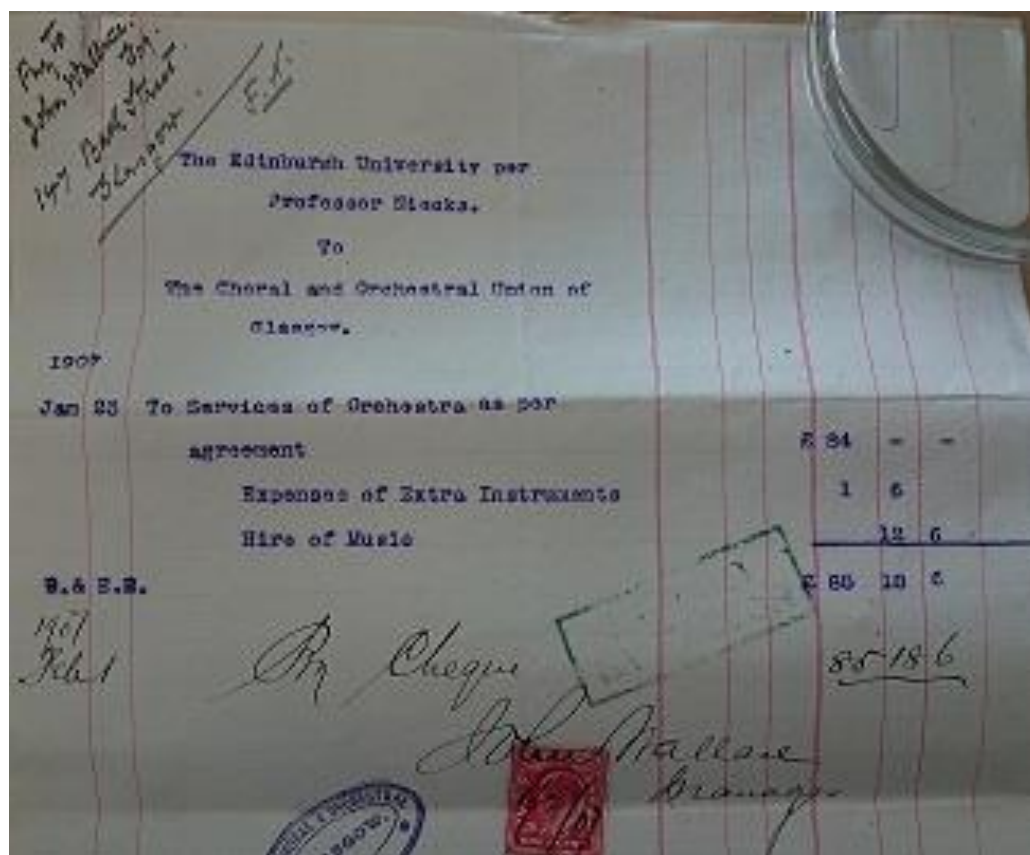 Pay to
John Wallace. Esq.
147 Bath Street
Glasgow.
The Edinburgh University per
Professor Niecks.
To
The Choral and Orchestral Union of
Glasgow.
1907
Jan 23 To Services of Orchestra as per
agreement £ 84 - -
Expenses of Extra Instruments 1 6
Hire of Music 12 6
E.& O.E. £ 85 18 6
1907
Feb 1 By Cheque 85 18 6
John Wallace
Manager
ORAL & ORCHESTRAL
SGOW.